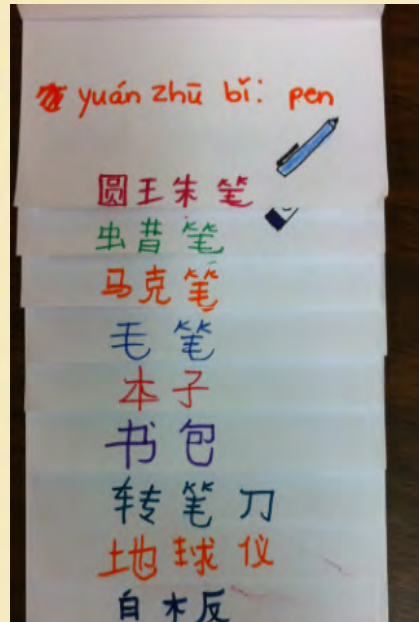 yuán zhū bǐ: pen
圆珠笔
蜡笔
马克笔
毛笔
本子
书包
转笔刀
地球仪
自板